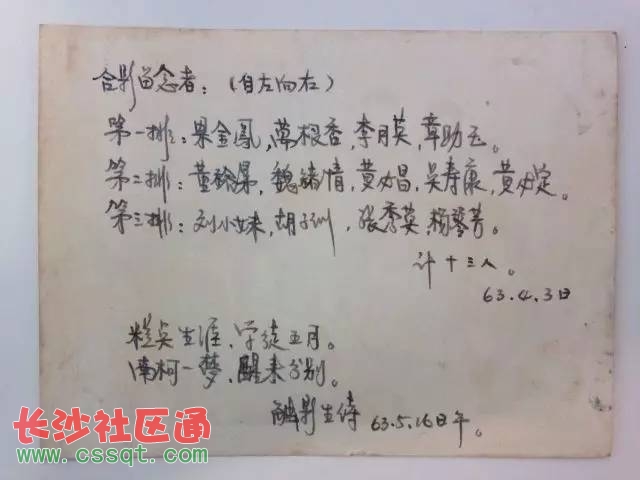 合影留念者：（自左向右）
第一排：果金凤，万根香，李月英，章助玉。
第二排：董裕杲，魏锦情，黄火昌，吴寿康，黄定。
第三排：刘小妹，胡子训，张秀英，杨琴芳。
计十三人。
63.4.3日
糕点生涯，学徒五月。
南柯一梦，醒来分别。
影生诗 63.5.16日午。
长沙社区通
www.cssqt.com